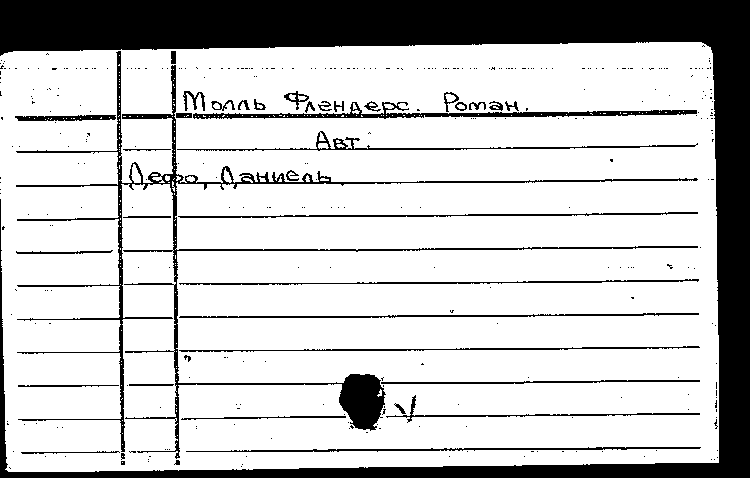 Молль Флендерс. Роман.
Авт.
Дефо, Даниель.
V